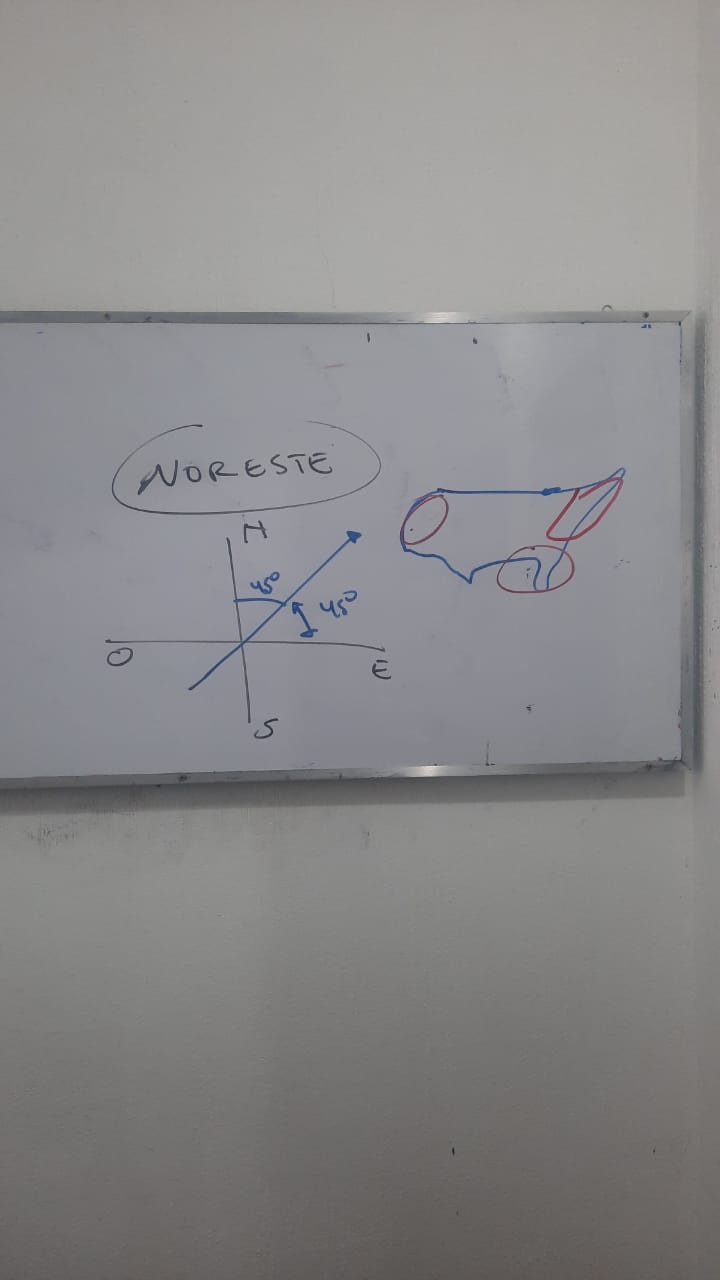 NORESTE
N
45°
45°
O
E
S